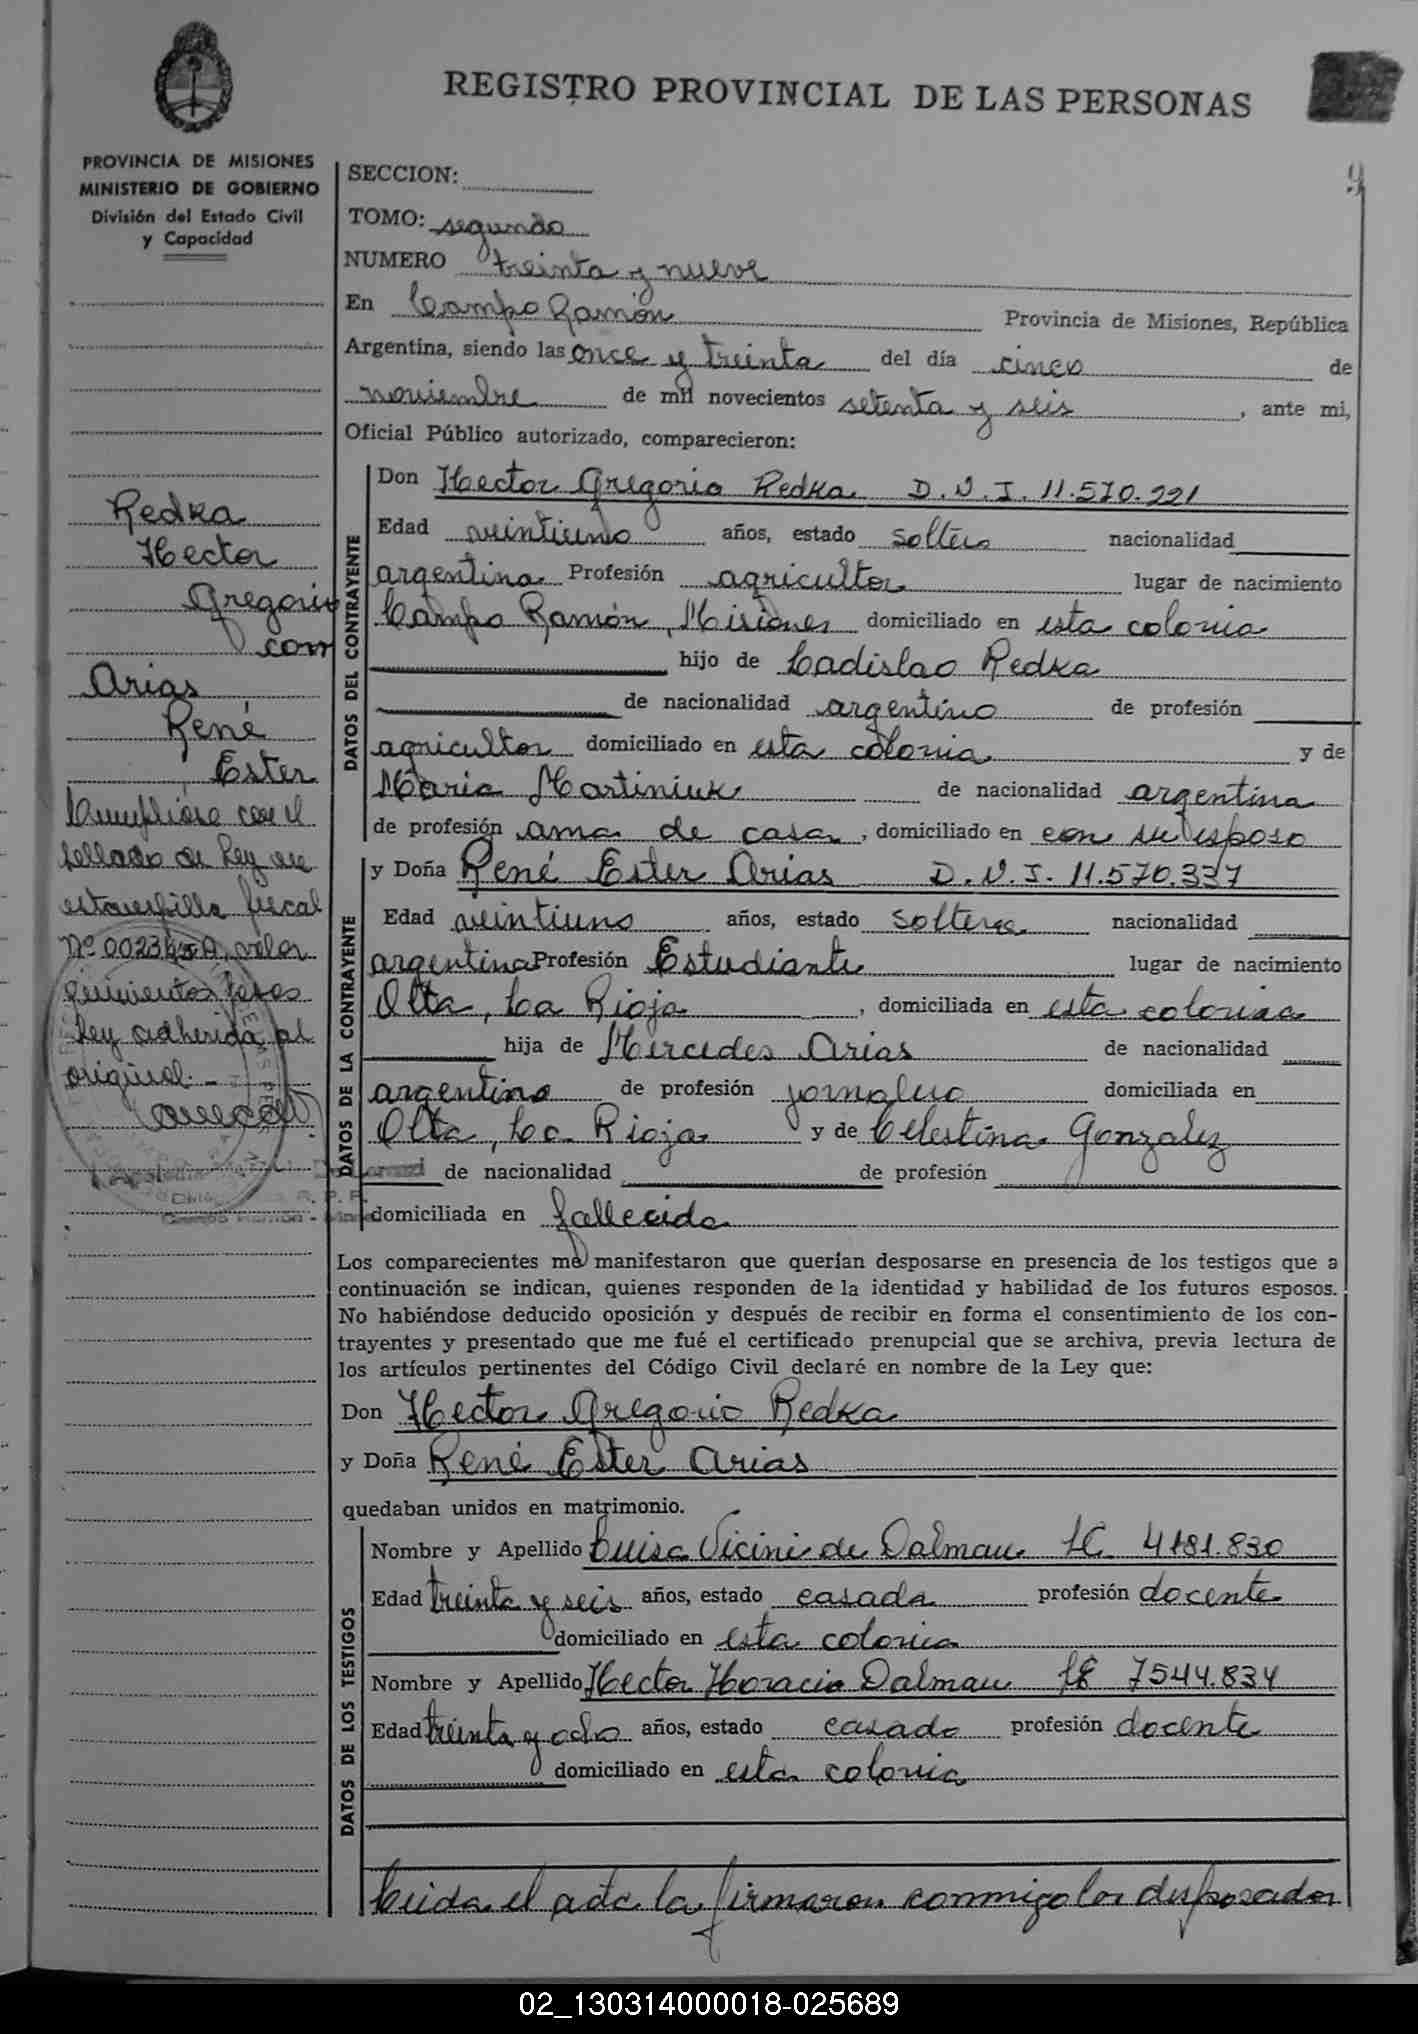 REGISTRO PROVINCIAL DE LAS PERSONAS
9
PROVINCIA DE MISIONES
MINISTERIO DE GOBIERNO
División del Estado Civil
y Capacidad
Redka
Hector
Gregorio
con
Arias
René
Ester
Cumpliose con el
sellado de Ley en
estampilla fiscal
valor
quinientos pesos
Ley adherida al
original.-
SECCION:
TOMO: segundo
NUMERO treinta y nueve
En Campo Ramón Provincia de Misiones, República
Argentina, siendo las once y treinta del día cinco de
noviembre de mil novecientos setenta y seis, ante mi,
Oficial Público autorizado, comparecieron:
DATOS DEL CONTRAYENTE
Don Hector Gregorio Redka D.N.I. 11.570.221
Edad veintiuno años, estado soltero nacionalidad
argentina Profesión agricultor lugar de nacimiento
Campo Ramón, Misiones domiciliado en esta colonia
hijo de Ladislao Redka
de nacionalidad argentino de profesión
agricultor domiciliado en esta colonia y de
Maria Martiniuk de nacionalidad argentina
de profesión ama de casa, domiciliado en con su esposo
DATOS DE LA CONTRAYENTE
y Doña René Ester Arias D.N.I. 11.570.337
Edad veintiuno años, estado soltera nacionalidad
argentina Profesión Estudiante lugar de nacimiento
Olta, La Rioja, domiciliada en esta colonia
hija de Mercedes Arias de nacionalidad
argentino de profesión jornalero domiciliada en
Olta, La Rioja y de Celestina Gonzalez
de nacionalidad de profesión
domiciliada en fallecida
Los comparecientes me manifestaron que querían desposarse en presencia de los testigos que a
continuación se indican, quienes responden de la identidad y habilidad de los futuros esposos.
No habiéndose deducido oposición y después de recibir en forma el consentimiento de los con-
trayentes y presentado que me fué el certificado prenupcial que se archiva, previa lectura de
los artículos pertinentes del Código Civil declaré en nombre de la Ley que:
Don Hector Gregorio Redka
y Doña René Ester Arias
quedaban unidos en matrimonio.
DATOS DE LOS TESTIGOS
Nombre y Apellido Luisa Vicini de Dalmau LC 4181.830
Edad treinta y seis años, estado casada profesión docente
domiciliado en esta colonia
Nombre y Apellido Hector Horacio Dalmau LE 7544.834
Edad treinta y ocho años, estado casado profesión docente
domiciliado en esta colonia
Leida el acta la firmaron conmigo los desposados
02_130314000018-025689